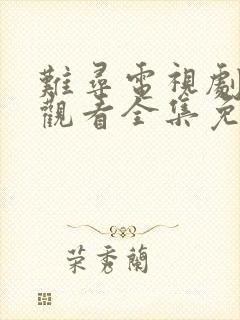 難尋電視劇
觀看全集免
荣秀蘭